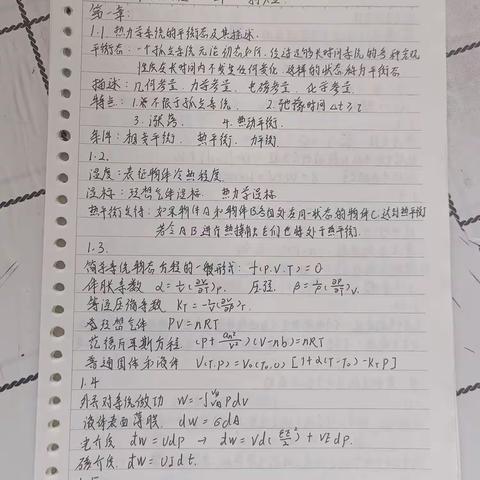 第一章:
1.1 热力学系统的平衡态及其描述.
平衡态: 一个孤立系统无论初态如何, 经过足够长时间系统的各种宏观
性质在长时间内不发生任何变化, 这样的状态称为平衡态
描述: 几何参量、力学参量、电磁参量、化学参量
特点: 1. 不限于孤立系统. 2. 弛豫时间 Δt≥τ
3. 涨落. 4. 热动平衡.
条件: 相变平衡. 热平衡. 力平衡
1.2.
温度: 表征物体冷热程度.
温标: 理想气体温标 热力学温标
热平衡定律: 如果物体A和物体B各自处在同一状态的物体C达到热平衡
若令A B进行热接触, 它们也将处于热平衡.
1.3.
简单系统物态方程的一般形式: f(P.V.T)=0
体胀系数 α=1/V(∂V/∂T)p. 压强 β=1/P(∂P/∂T)v.
等温压缩系数 KT=-1/V(∂V/∂P)T.
理想气体 PV=nRT
范德瓦耳斯方程 (P+an²/V²)(V-nb)=nRT
普通固体和液体 V(T.P)=V0(T0,0)[1+α(T-T0)-KTP]
1.4
外界对系统做功 W=-∫PdV
液体表面薄膜. dW=σdA
电介质 dW=Udq → dW=Vd(εE²/2)+VEdp.
磁介质. dW=UIdt.